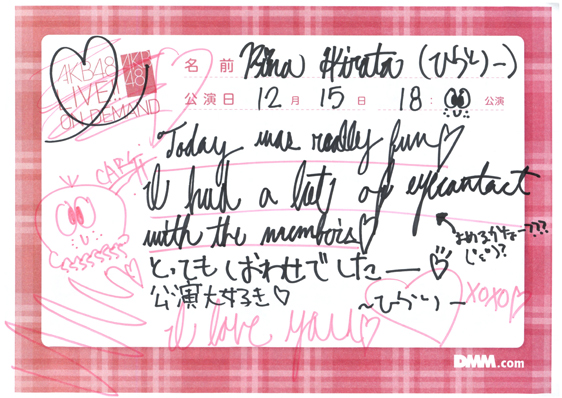 AKB48
LIVE!!
ON DEMAND
AKB
48
名前 Rina Hirata (ひらりー)
公演日 12月 15日 18: 公演
Today was really fun♡
I had a lots of eyecantact
with the members♡
とってもしあわせでしたー
公演大すき♡
〜ひらりー
XOXO♡
i love you♡
DMM.com